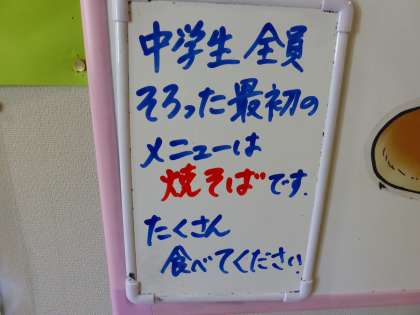 中学生 全員
そろった最初の
メニューは
焼そばです.
たくさん
食べてください